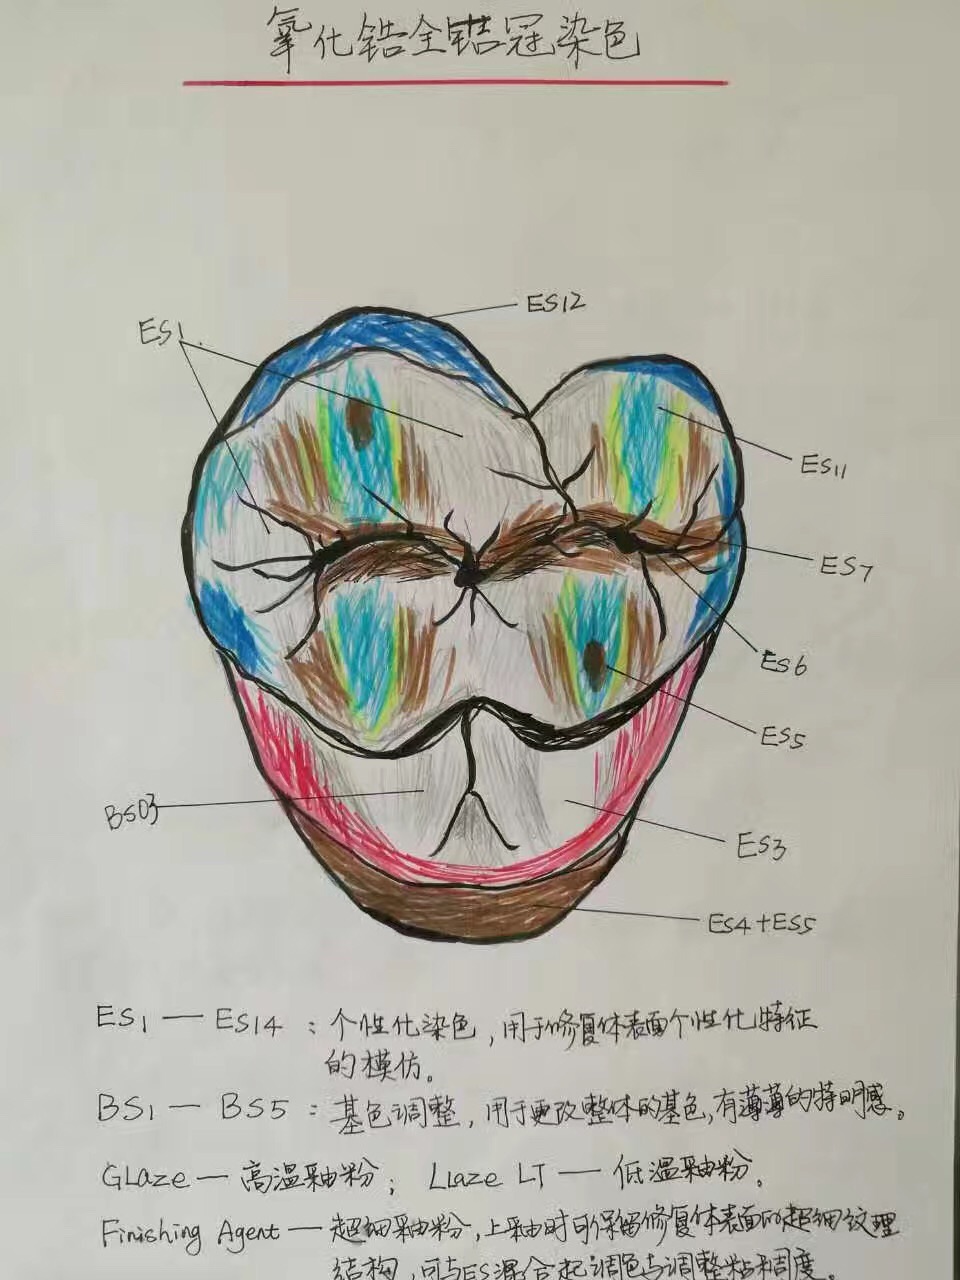 氧化锆全锆冠染色
ES12
ES1
ES11
ES7
ES6
ES5
BS03
ES3
ES4+ES5
ES1 — ES14 : 个性化染色，用于修复体表面个性化特征
的模仿。
BS1 — BS5 : 基色调整，用于更改整体的基色，有薄薄的特明感。
GLaze — 高温釉粉； LLaze LT — 低温釉粉。
Finishing Agent — 超细釉粉，上釉时可保留修复体表面的超细纹理
结构，可与ES混合起调色与调整粘稠度。